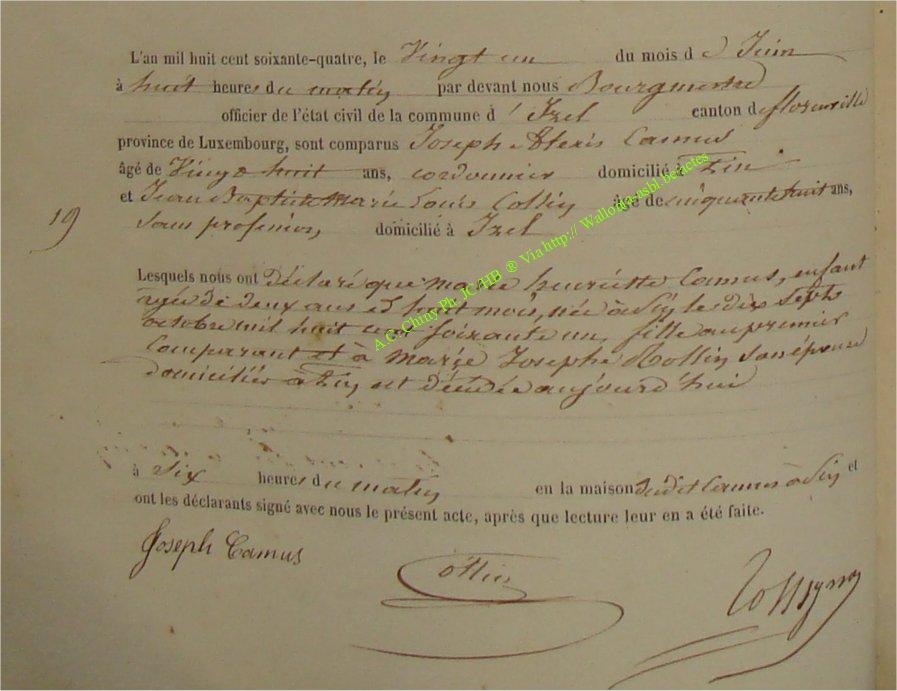 L'an mil huit cent soixante-quatre, le Vingt un du mois d e Juin
à huit heures du matin par devant nous Bourgmestre
officier de l'état civil de la commune d' Izel canton de florenville
province de Luxembourg, sont comparus Joseph Alexis Camus
âgé de Vingt huit ans, cordonnier domicilié à
et Jean Baptiste Marie Louis Collin âgé de cinquante huit ans,
19
sans profession, domicilié à Izel
Lesquels nous ont Déclaré que marie henriette Camus, enfant
agée de deux ans et huit mois, née à les dix sept
octobre mil huit cent soixante un, fille au premier
Comparant et à marie Josephe Collin son épouse
domiciliés à est décédée aujourd'hui
à Six heures du matin en la maison dudit Camus à et
ont les déclarants signé avec nous le présent acte, après que lecture leur en a été faite.
Joseph Camus
Collin
A.C. Chiny Ph. JC/HB ® Via http:// Wallonia.asbl.be/actes